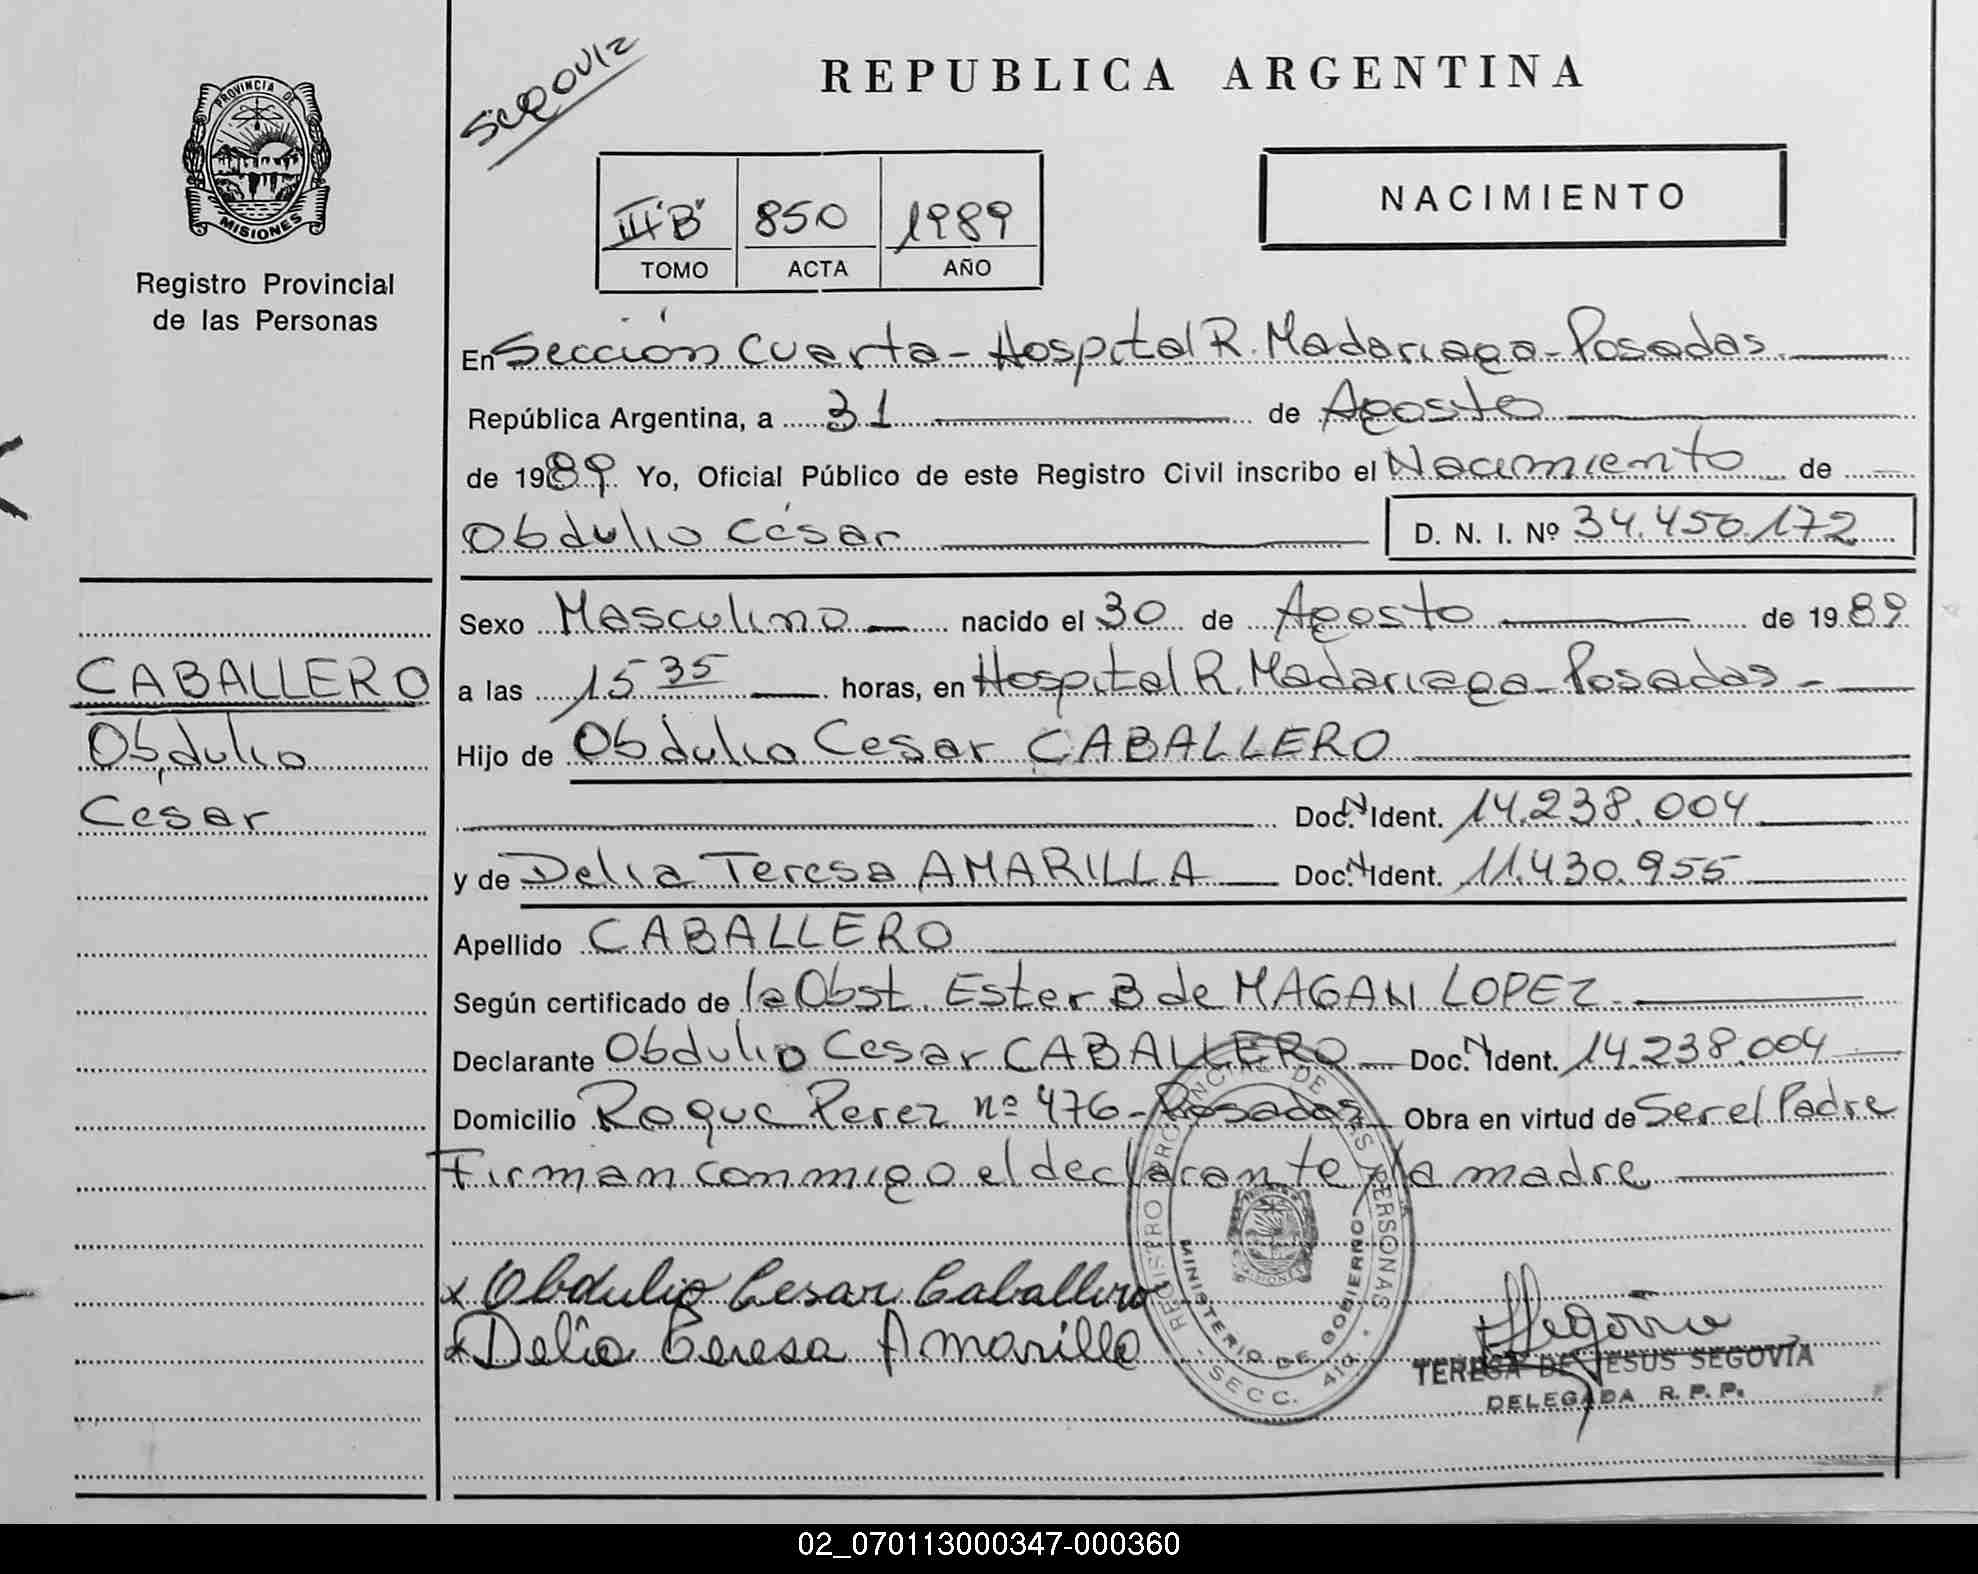 PROVINCIA DE
MISIONES
Registro Provincial
de las Personas
CABALLERO
Obdulio
Cesar
REPUBLICA ARGENTINA
NACIMIENTO
III "B" 850 1989
TOMO ACTA AÑO
En Sección Cuarta - Hospital R. Madariaga - Posadas
República Argentina, a 31 de Agosto
de 1989 Yo, Oficial Público de este Registro Civil inscribo el Nacimiento de
Obdulio César D. N. I. Nº 34.450.172
Sexo Masculino nacido el 30 de Agosto de 1989
a las 15 35 horas, en Hospital R. Madariaga - Posadas -
Hijo de Obdulio Cesar CABALLERO
Doc. N Ident. 14.238.004
y de Delia Teresa AMARILLA Doc. N Ident. 11.430.955
Apellido CABALLERO
Según certificado de la Obst. Ester B de MAGAN LOPEZ
Declarante Obdulio Cesar CABALLERO Doc. N Ident. 14.238.004
Domicilio Roque Perez nº 476 - Posadas Obra en virtud de Ser el Padre
Firman conmigo el declarante y la madre
x Obdulio Cesar Caballero
x Delia Teresa Amarilla
REGISTRO PROVINCIAL DE LAS PERSONAS
MINISTERIO DE GOBIERNO
SECC. 4ta.
TERESA DE JESUS SEGOVIA
DELEGADA R. P. P.
02_070113000347-000360